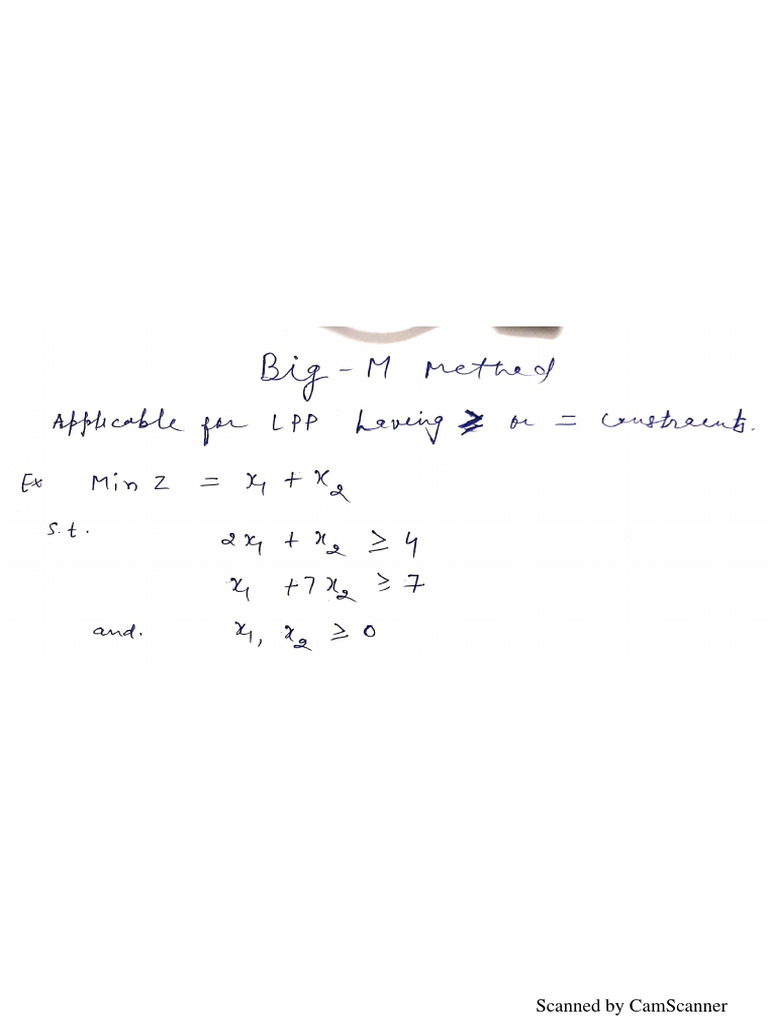 Big - M Method
Applicable for LPP having ≥ or = constraints.
Ex Min Z = x₁ + x₂
s.t.
2x₁ + x₂ ≥ 4
x₁ + 7x₂ ≥ 7
and. x₁, x₂ ≥ 0
Scanned by CamScanner